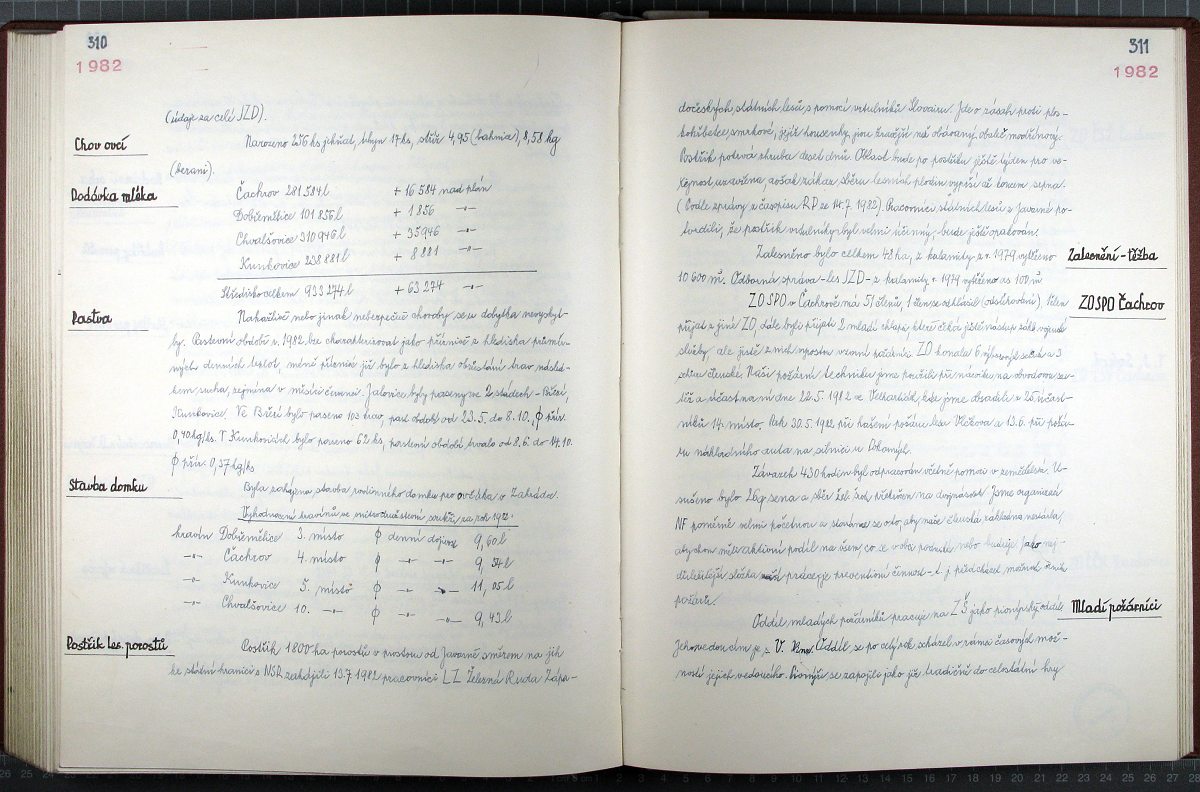 310
1982
(údaje za celé JZD).
Chov ovcí
Narozeno 256 ks jehňat, úhyn 17 ks, stříž 4,95 (bahnia), 8,58 kg
(berani).
Dodávka mléka
Čachrov 281 584 l + 16 584 nad plán
Dobřemělice 101 856 l + 1 856 -"-
Chvalšovice 310 946 l + 35 946 -"-
Kunkovice 238 881 l + 8 881 -"-
Středisko celkem 933 274 l + 63 274 -"-
Pastva
Nakažlivé nebo jinak nebezpečné choroby se u dobytka nevyskyt-
ly. Pastevní období r. 1982 lze charakterizovat jako příznivé z hlediska průměr-
ných denních teplot, méně příznivé již bylo z hlediska obrůstání trav násled-
kem sucha, zejména v měsíci červnu. Jalovice byly paseny ve 2 stádech - Březí,
Kunkovice. Ve Březí bylo paseno 103 krav, past. období od 23.5. do 8.10., ϕ přír.
0,40 kg/ks. V Kunkovicích bylo paseno 62 ks, pastevní období trvalo od 8.6. do 14.10.
ϕ přír. 0,57 kg/ks
Stavba domku
Byla zahájena stavba rodinného domku pro ovčáka v Zahrádce.
Vyhodnocení kravínů ve vnitrodružstevní soutěži za rok 1982:
kravín Dobřemělice 3. místo ϕ denní dojivost 9,60 l
-"- Čachrov 4. místo ϕ -"- -"- 9,54 l
-"- Kunkovice 5. místo ϕ -"- -"- 11,05 l
-"- Chvalšovice 10. -"- ϕ -"- -"- 9,43 l
Postřik les. porostů
Postřik 1800 ha porostů v prostoru od Javorné směrem na jih
ke státní hranici s NSR zahájili 13.7.1982 pracovníci LZ Železná Ruda Zápa-
311
1982
dočeských státních lesů s pomocí vrtulníků Slovairu. Jde o zásah proti plo-
skohřbetce smrkové, jejíž housenky jsou žravější než obávaný obaleč modřínový.
Postřik potrvá zhruba deset dnů. Oblast bude po postřiku ještě týden pro ve-
řejnost uzavřena, avšak zákaz sběru lesních plodin vyprší až koncem srpna.
(Podle zprávy z časopisu RP ze 14.7.1982). Pracovníci státních lesů z Javorné po-
tvrdili, že postřik vrtulníky byl velmi účinný, bude ještě opakován.
Zalesnění - těžba
Zalesněno bylo celkem 48 ha, z kalamity z r. 1979 vytěženo
10 600 m³. Odborná správa - les JZD - z kalamity r. 1979 vytěženo as 100 m³
ZO SPO Čachrov
ZO SPO v Čachrově má 51 členů, 1 člen se odhlásil (odstěhování), 1 člen
přijat z jiné ZO, dále byli přijati 2 mladí chlapi, které čeká ještě nástup zákl. vojenské
služby, ale jistě z nich vyrostou vzorní požárníci. ZO konala 6 výborových schůzí a 3
schůze členské. Naši požární techniku jsme použili při nácviku na obvodovou sou-
těž a účast na ní dne 22.5.1982 ve Velharticích, kde jsme obsadili z 25 účast-
níků 14. místo. Rok 30.5.1982 při hašení požáru lesa Vlčkova a 13.6. při požá-
ru nákladního auta na silnici
Závazek 430 hodin byl odpracován včetně pomoci v zemědělství. U-
sušeno bylo 26 q sena a sběr žel. šrotu překročen na dvojnásob. Jsme organizací
NF poměrně velmi početnou a staráme se o to, aby naše členská základna nestárla,
abychom měli aktivní podíl na všem, co se v obci podniká nebo buduje. Jako nej-
důležitější složka naší práce je preventivní činnost - t. j. předcházet možnosti vzniku
požárů.
Mladí požárníci
Oddíl mladých požárníků pracuje na ZŠ jako pionýrský oddíl.
Jeho vedoucím je s. V. Oddíl se po celý rok scházel v rámci časových mož-
ností jejich vedoucího. Pionýři se zapojili jako již tradičně do celostátní hry